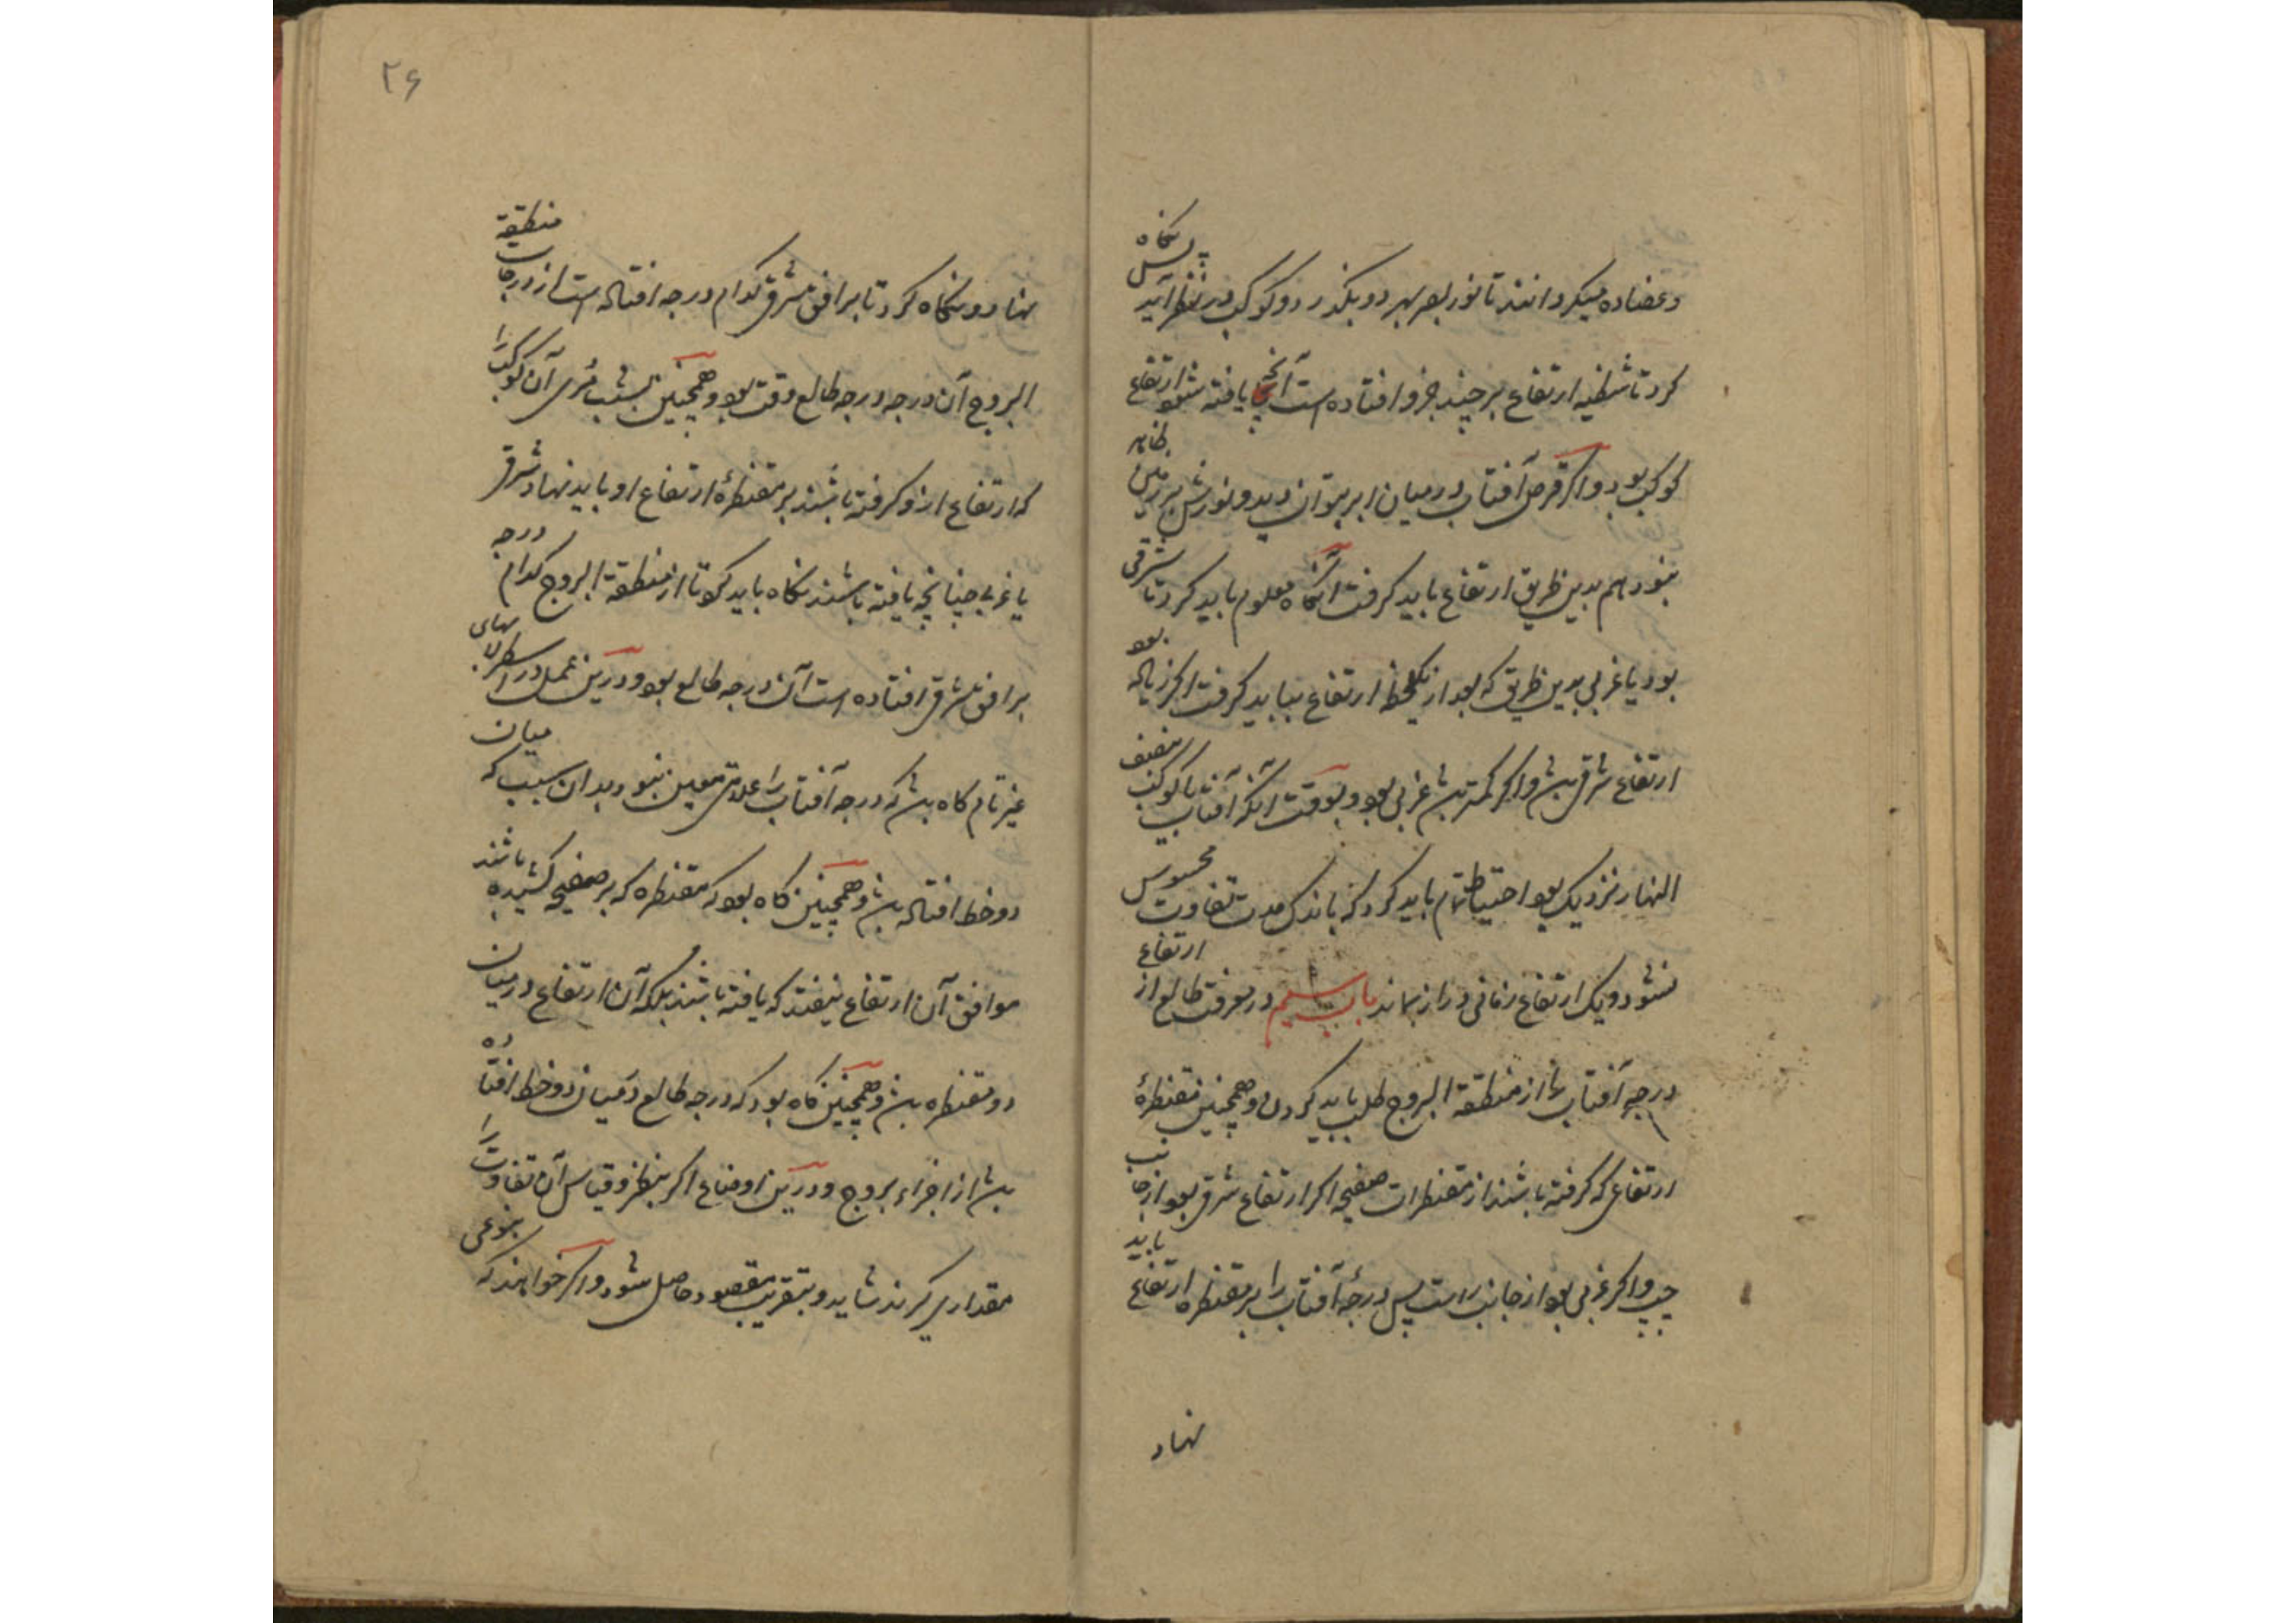 وعضاده میکردانند تا نور بصر بهر دو بکذرد و کوکب در نظر آید پس نکاه
کرد تا شظیه ارتفاع بر چند جزو افتاده است آنچه یافته شود ارتفاع
کوکب بود واکر قرص آفتاب در میان ابر بتوان دید و نورش بر زمین ظاهر
نبود هم بدین طریق ارتفاع باید کرفت آنکاه معلوم باید کرد تا شرقی
بود یا غربی بدین طریق که بعد از یکلحظه ارتفاع بباید کرفت اکر زیاده بود
ارتفاع شرقی باشد واکر کمتر باشد غربی بود وبوقت آنکه آفتاب یا کوکب بنصف
النهار نزدیک بود احتیاط تمام باید کرد که باندک مدت تفاوت محسوس
نشود ویک ارتفاع زمانی دراز بماند باب سیم در معرفت طالع از ارتفاع
درجه آفتاب را از منطقة البروج طلب باید کردن وهمچنین مقنطرهٔ
ارتفاعی که کرفته باشند از مقنطرات صفیحه اکر ارتفاع شرقی بود از جانب
چپ واکر غربی بود از جانب راست پس درجهٔ آفتاب را بر مقنطره ارتفاع باید
نهاد
۲۶
نهاد ونکاه کرد تا بر افق مشرق کدام درجه افتاده است از درجات منطقة
البروج آن درجه درجه طالع وقت بود وهمچنین بشب مری آن کوکب را
که ارتفاع ازو کرفته باشند بر مقنطرهٔ ارتفاع او باید نهاد شرقی
یا غربی چنانچه یافته باشند نکاه باید کرد تا از منطقة البروج کدام درجه
بر افق مشرق افتاده است آن درجه طالع بود ودرین عمل در اسطرلابهای
غیر تام کاه باشد که درجه آفتاب را علامتی معین نبود بدان سبب که میان
دو خط افتاده باشد وهمچنین کاه بود که مقنطره که بر صفیحه کشیده باشند
موافق آن ارتفاع نیفتد که یافته باشند بلکه آن ارتفاع در میان
دو مقنطره باشد وهمچنین کاه بود که درجه طالع در میان دو خط افتاده
باشد از اجزاء بروج ودرین اوضاع اکر بنظر وقیاس آن تفاوت را
مقداری کیرند شاید وبتقریب مقصود حاصل شود واکر خواهند که بنوعی